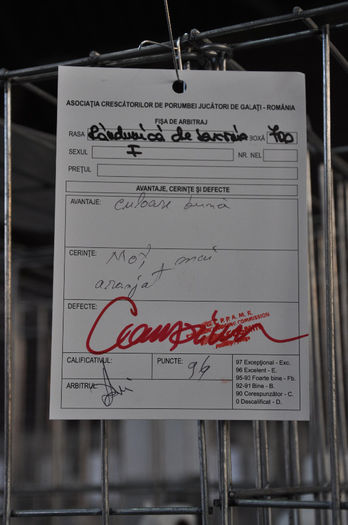 ASOCIAȚIA CRESCĂTORILOR DE PORUMBEI JUCĂTORI DE GALAȚI - ROMÂNIA
FIȘA DE ARBITRAJ
RASA Rândunică de Saxonia BOXĂ 700
SEXUL I NR. NEL
PREȚUL
AVANTAJE, CERINȚE ȘI DEFECTE
AVANTAJE: Culoare bună
CERINȚE: Moț mai
aranjat
DEFECTE:
Campion
COMMISSION
CALIFICATIVUL: PUNCTE: 94
ARBITRU:
97 Excepțional - Exc.
96 Excelent - E.
95-93 Foarte bine - Fb.
92-91 Bine - B.
90 Corespunzător - C.
0 Descalificat - D.